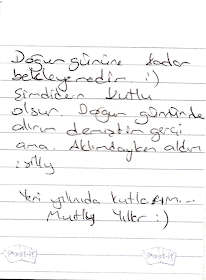 Doğum gününe kadar
bekleyemedim :)
Şimdiden kutlu
olsun. Doğum gününde
alırım demiştim gerçi
ama. Aklımdayken aldım
Yeni yılınıda kutlarım...
Mutlu Yıllar :)
Post-it
Post-it